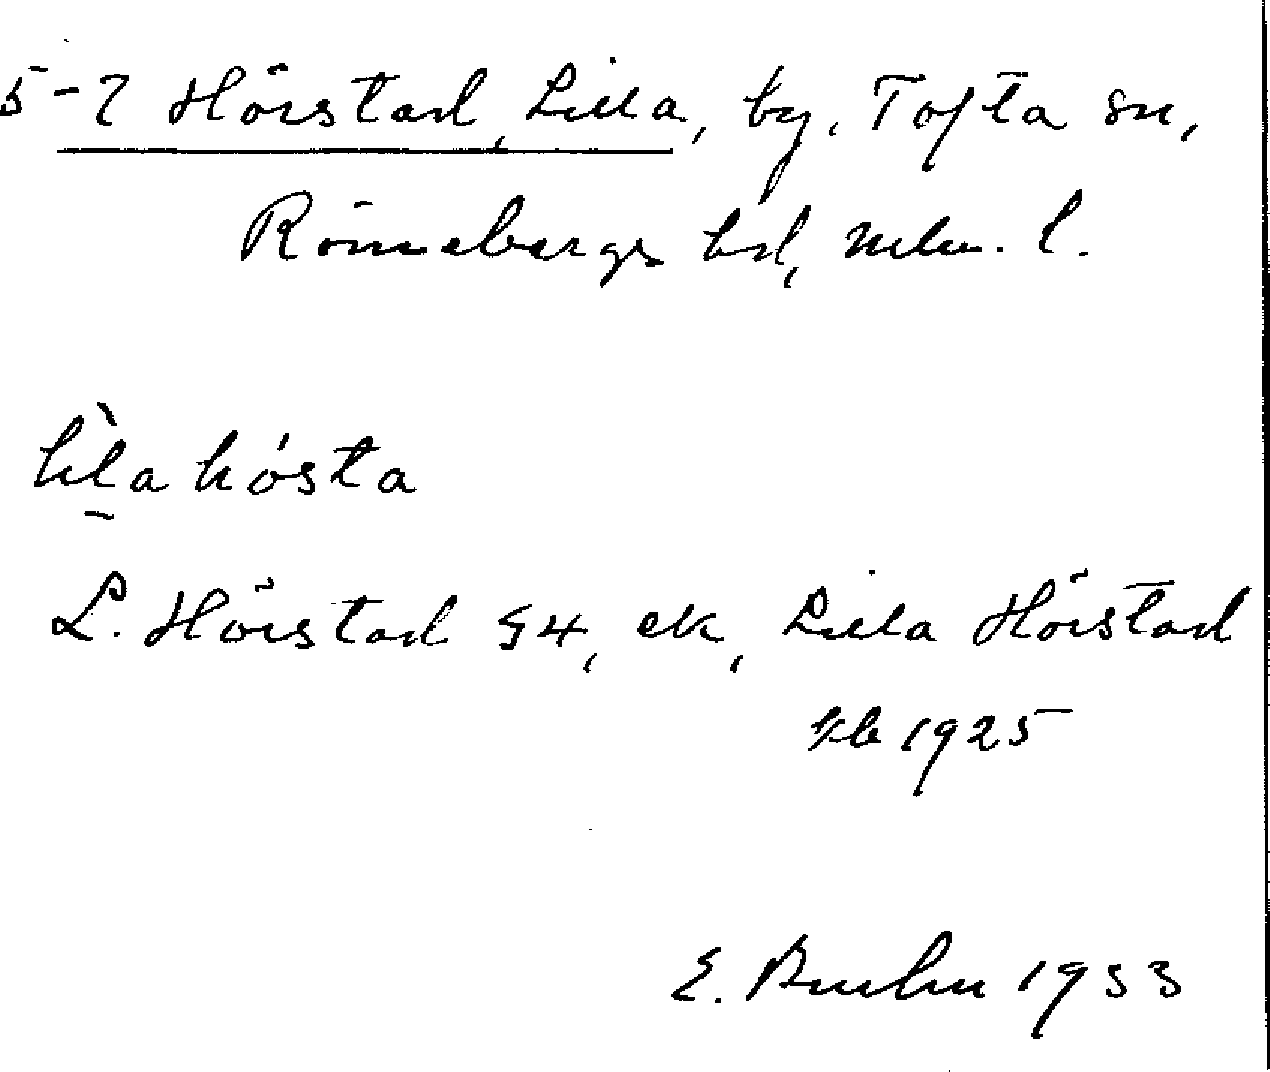 5-7 Hörstad, Lilla, by, Tofta sn,
Rönnebergs hd, Mlm. l.
lìla hósta
L. Hörstad §4, ek, Lilla Hörstad
kb 1925
E. 1933